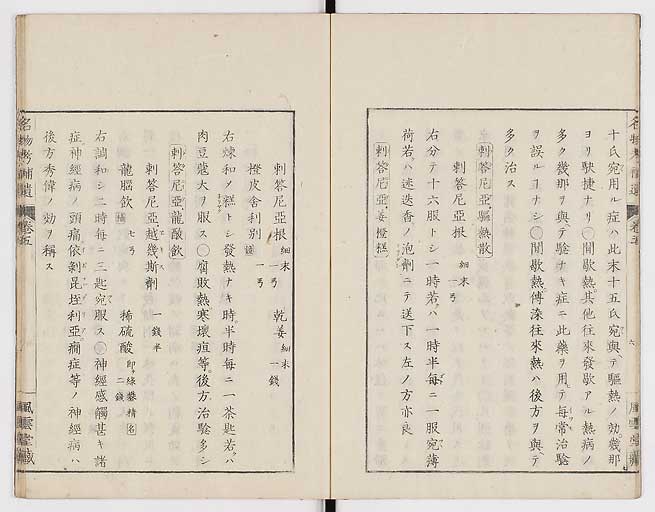 十氏宛用ル症ハ此末十五氏宛與テ驅熱ノ効幾那
ヨリ駃捷ナリ〇間歇熱其他往來發歇アル熱病ノ
多ク幾那ヲ與テ驗ナキ症ニ此藥ヲ用テ每常治驗
ヲ誤ルヿナシ〇間歇熱傳染往來熱ハ後方ヲ與テ
多ク治ス
刺答尼亞驅熱散
刺答尼亞根 細末 一弓
右分テ十六服トシ一時若ハ一時半每ニ一服宛薄
荷若ハ迷迭香ノ泡劑ニテ送下ス左ノ方亦良
刺答尼亞姜橙糕
名物考補遺 卷五 六 風雲堂藏
刺答尼亞根 細末 一弓 乾姜 細末 一錢
橙皮舍利別 一弓
右煉和ノ糕トシ發熱ナキ時半時每ニ一茶匙若ハ
肉豆蔲大ヲ服ス〇腐敗熱寒壞疽等後方治驗多シ
刺答尼亞龍酸飮
刺答尼亞越幾斯劑 一錢半
龍腦飮 七弓 稀硫酸 即綠礬精 二錢
右調和シ二時每ニ三匙宛服ス〇神經感觸甚キ諸
症神經病ノ頭痛依剝昆垤利亞癇症等ノ神經病ハ
後方秀偉ノ効ヲ稱ス
名物考補遺 卷五 風雲堂藏